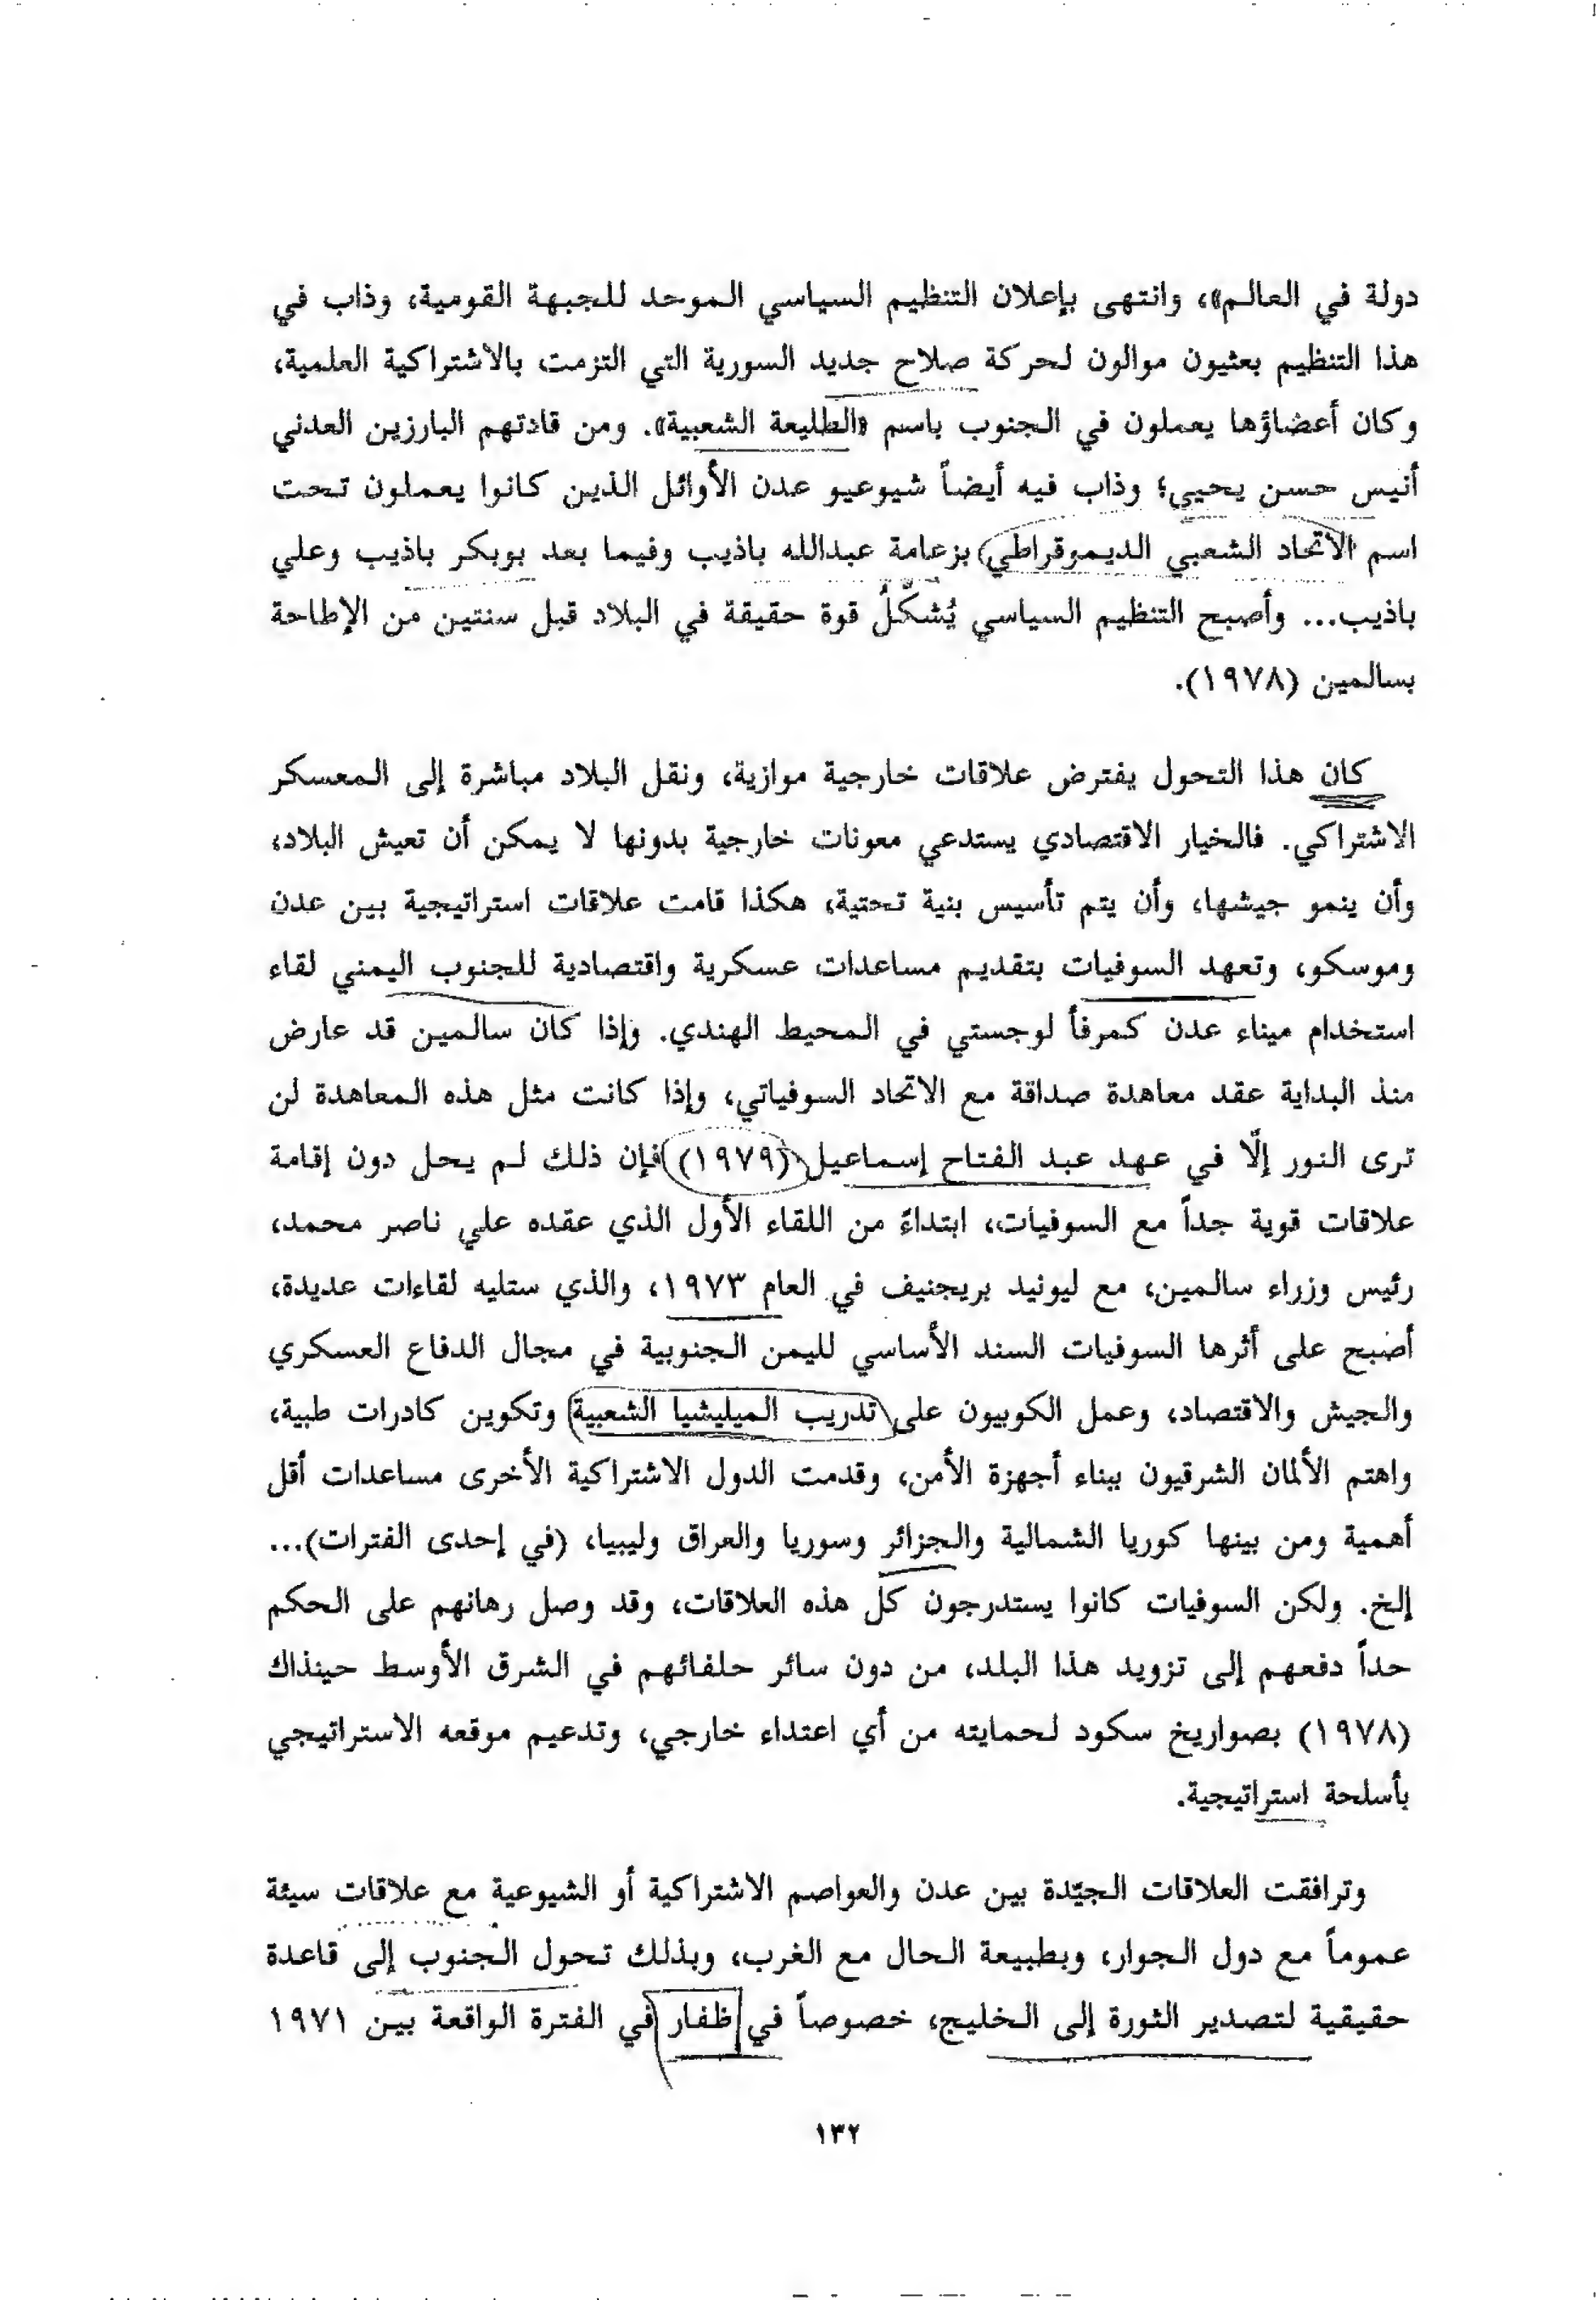 دولة في العالم»، وانتهى بإعلان التنظيم السياسي الموحد للجبهة القومية، وذاب في
هذا التنظيم بعثيون موالون لحركة صلاح جديد السورية التي التزمت بالاشتراكية العلمية،
وكان أعضاؤها يعملون في الجنوب باسم «الطليعة الشعبية». ومن قادتهم البارزين العدني
أنيس حسن يحيى؛ وذاب فيه أيضاً شيوعيو عدن الأوائل الذين كانوا يعملون تحت
اسم الاتحاد الشعبي الديموقراطي بزعامة عبدالله باذيب وفيما بعد بوبكر باذيب وعلي
باذيب... وأصبح التنظيم السياسي يُشكّلُ قوة حقيقة في البلاد قبل سنتين من الإطاحة
بسالمين (١٩٧٨).
كان هذا التحول يفترض علاقات خارجية موازية، ونقل البلاد مباشرة إلى المعسكر
الاشتراكي. فالخيار الاقتصادي يستدعي معونات خارجية بدونها لا يمكن أن تعيش البلاد،
وأن ينمو جيشها، وأن يتم تأسيس بنية تحتية، هكذا قامت علاقات استراتيجية بين عدن
وموسكو، وتعهد السوفيات بتقديم مساعدات عسكرية واقتصادية للجنوب اليمني لقاء
استخدام ميناء عدن كمرفأ لوجستي في المحيط الهندي. وإذا كان سالمين قد عارض
منذ البداية عقد معاهدة صداقة مع الاتحاد السوفياتي، وإذا كانت مثل هذه المعاهدة لن
ترى النور إلّا في عهد عبد الفتاح إسماعيل (١٩٧٩) فإن ذلك لم يحل دون إقامة
علاقات قوية جداً مع السوفيات، ابتداءً من اللقاء الأول الذي عقده علي ناصر محمد،
رئيس وزراء سالمين، مع ليونيد بريجنيف في العام ١٩٧٣، والذي ستليه لقاءات عديدة،
أصبح على أثرها السوفيات السند الأساسي لليمن الجنوبية في مجال الدفاع العسكري
والجيش والاقتصاد، وعمل الكوبيون على تدريب الميليشيا الشعبية وتكوين كادرات طبية،
واهتم الألمان الشرقيون ببناء أجهزة الأمن، وقدمت الدول الاشتراكية الأخرى مساعدات أقل
أهمية ومن بينها كوريا الشمالية والجزائر وسوريا والعراق وليبيا، (في إحدى الفترات)...
إلخ. ولكن السوفيات كانوا يستدرجون كل هذه العلاقات، وقد وصل رهانهم على الحكم
حداً دفعهم إلى تزويد هذا البلد، من دون سائر حلفائهم في الشرق الأوسط حينذاك
(١٩٧٨) بصواريخ سكود لحمايته من أي اعتداء خارجي، وتدعيم موقعه الاستراتيجي
بأسلحة استراتيجية.
وترافقت العلاقات الجيّدة بين عدن والعواصم الاشتراكية أو الشيوعية مع علاقات سيئة
عموماً مع دول الجوار، وبطبيعة الحال مع الغرب، وبذلك تحول الجنوب إلى قاعدة
حقيقية لتصدير الثورة إلى الخليج، خصوصاً في ظفار في الفترة الواقعة بين ١٩٧١
١٣٢